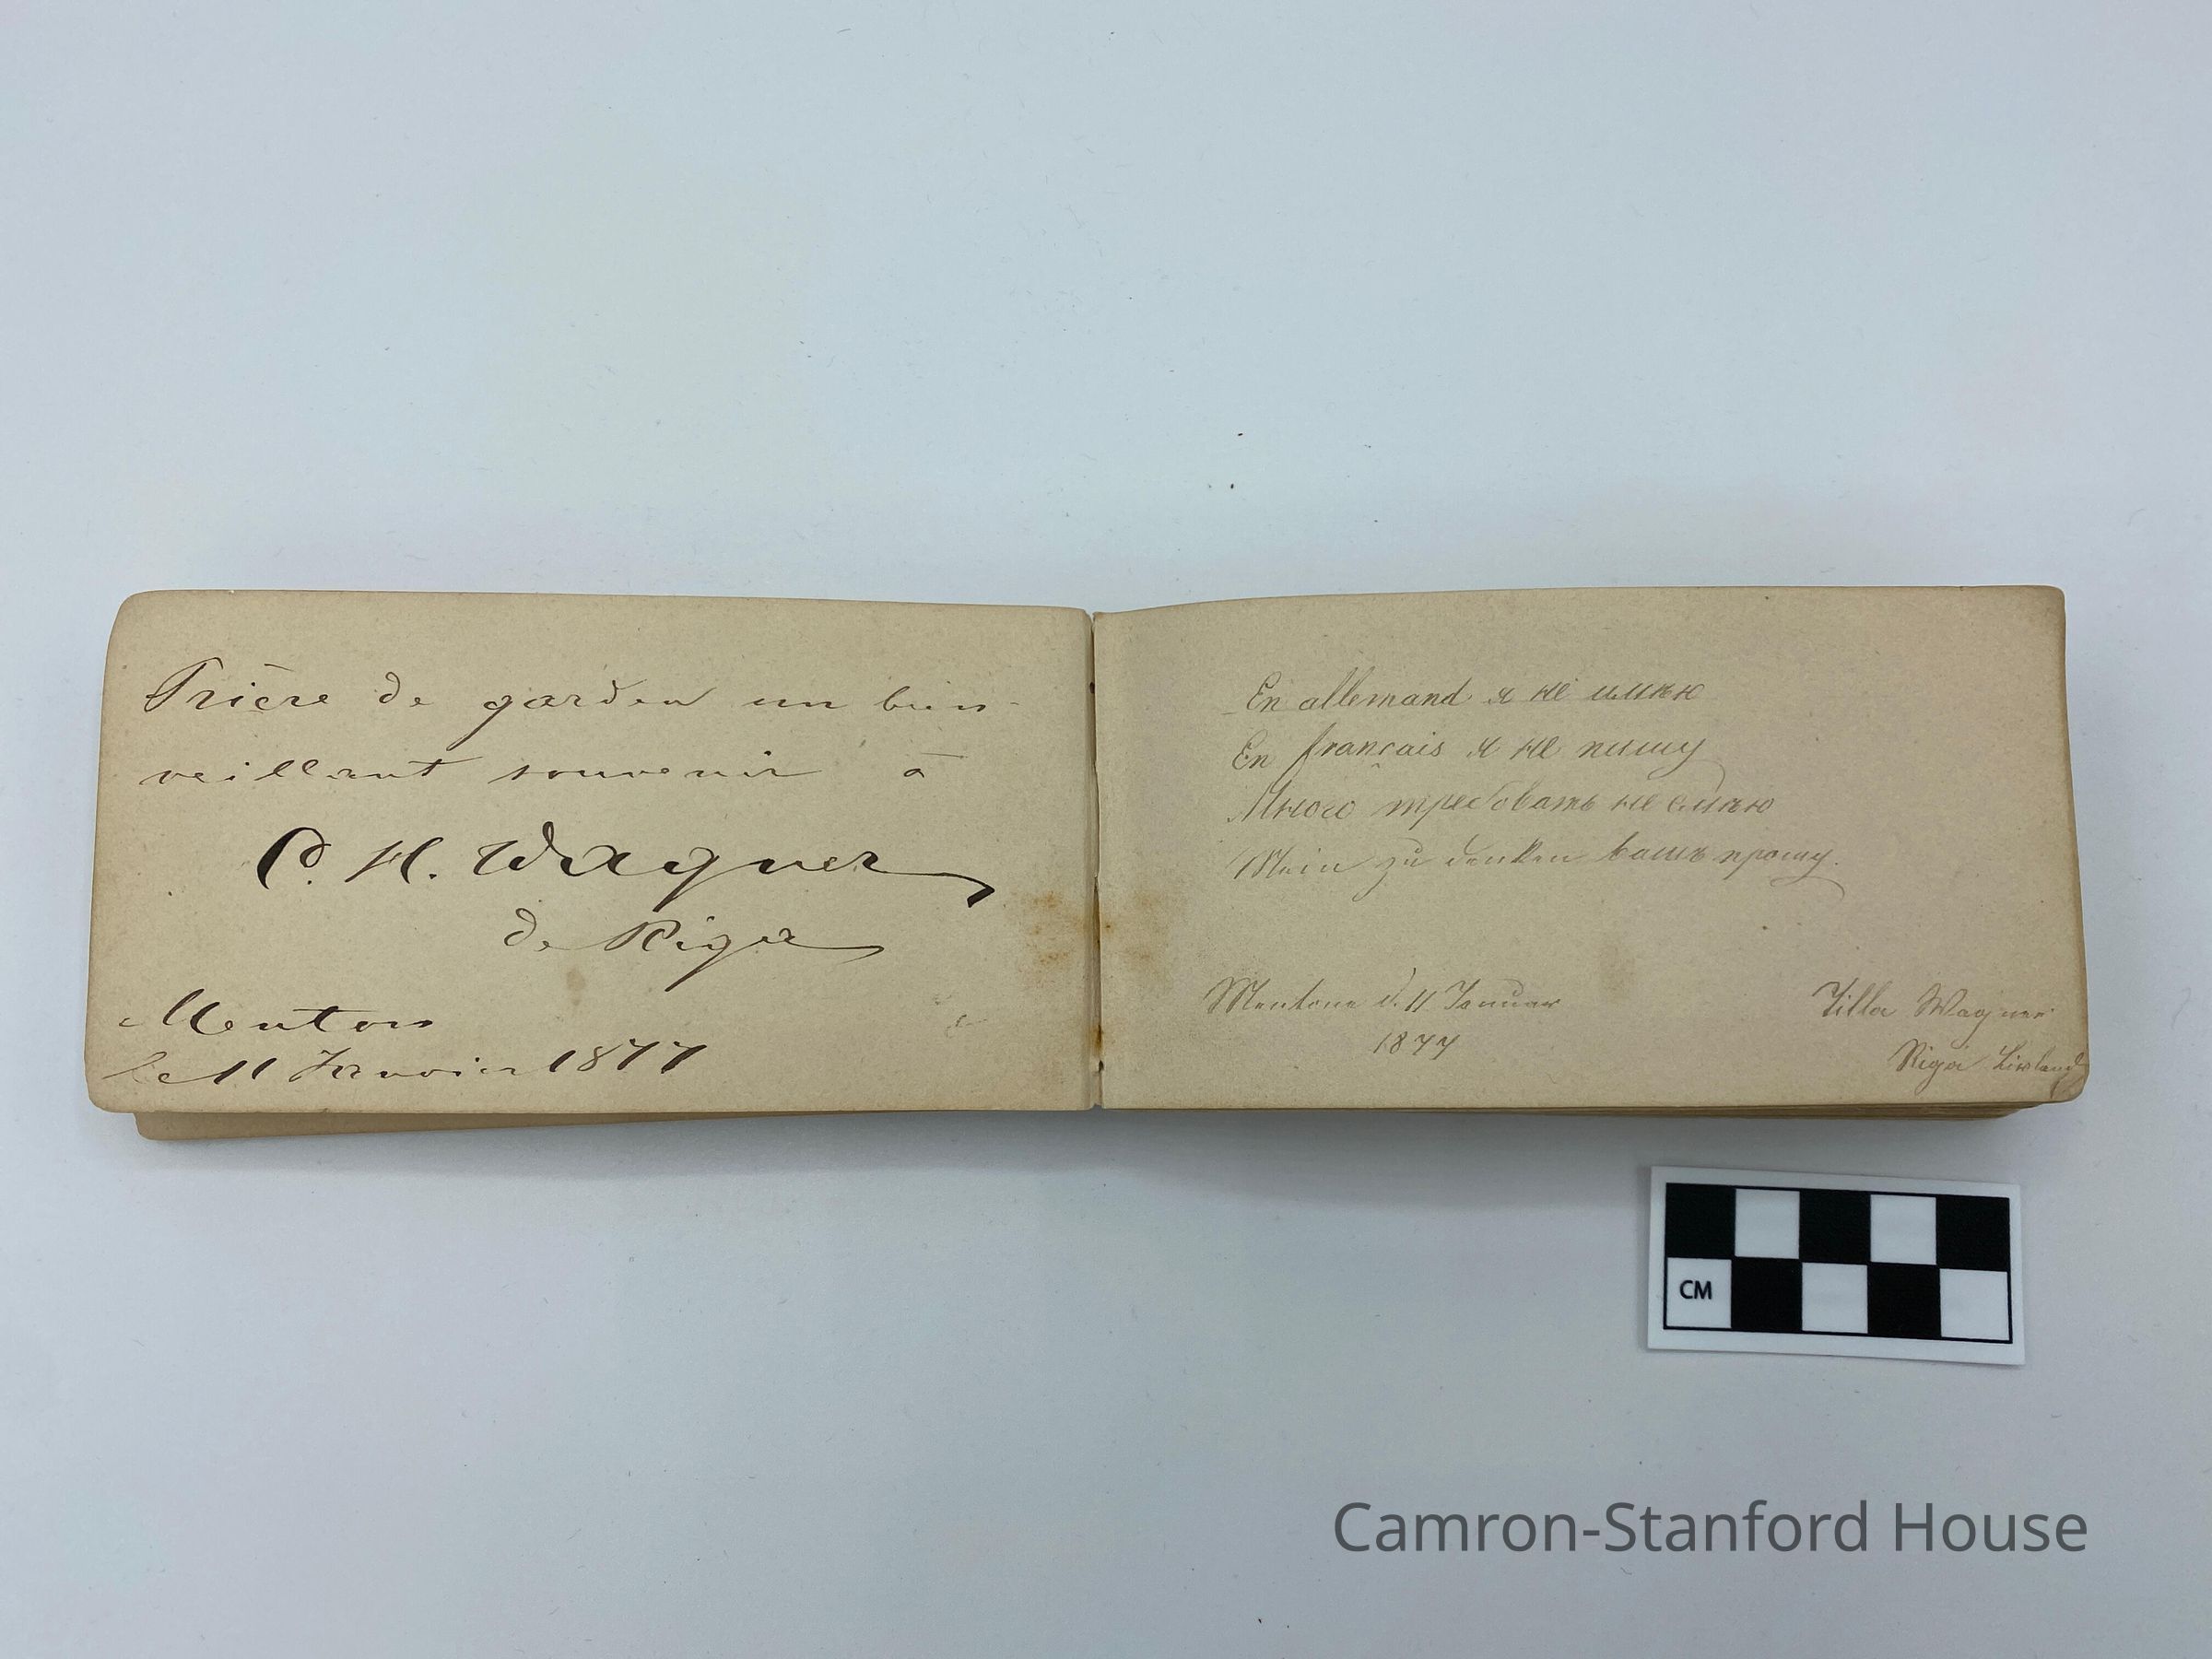 Prière de garder un bien-
veillant souvenir à
C. H. Wagner
de Riga
Menton
le 11 Janvier 1877
En allemand я не умѣю
En français я не пишу
Много требовать не смѣю
Mein zu denken вашъ прошу.
Mentone d. 11 Januar
1877
Tilla Wagner
Riga Livland
CM
Camron-Stanford House